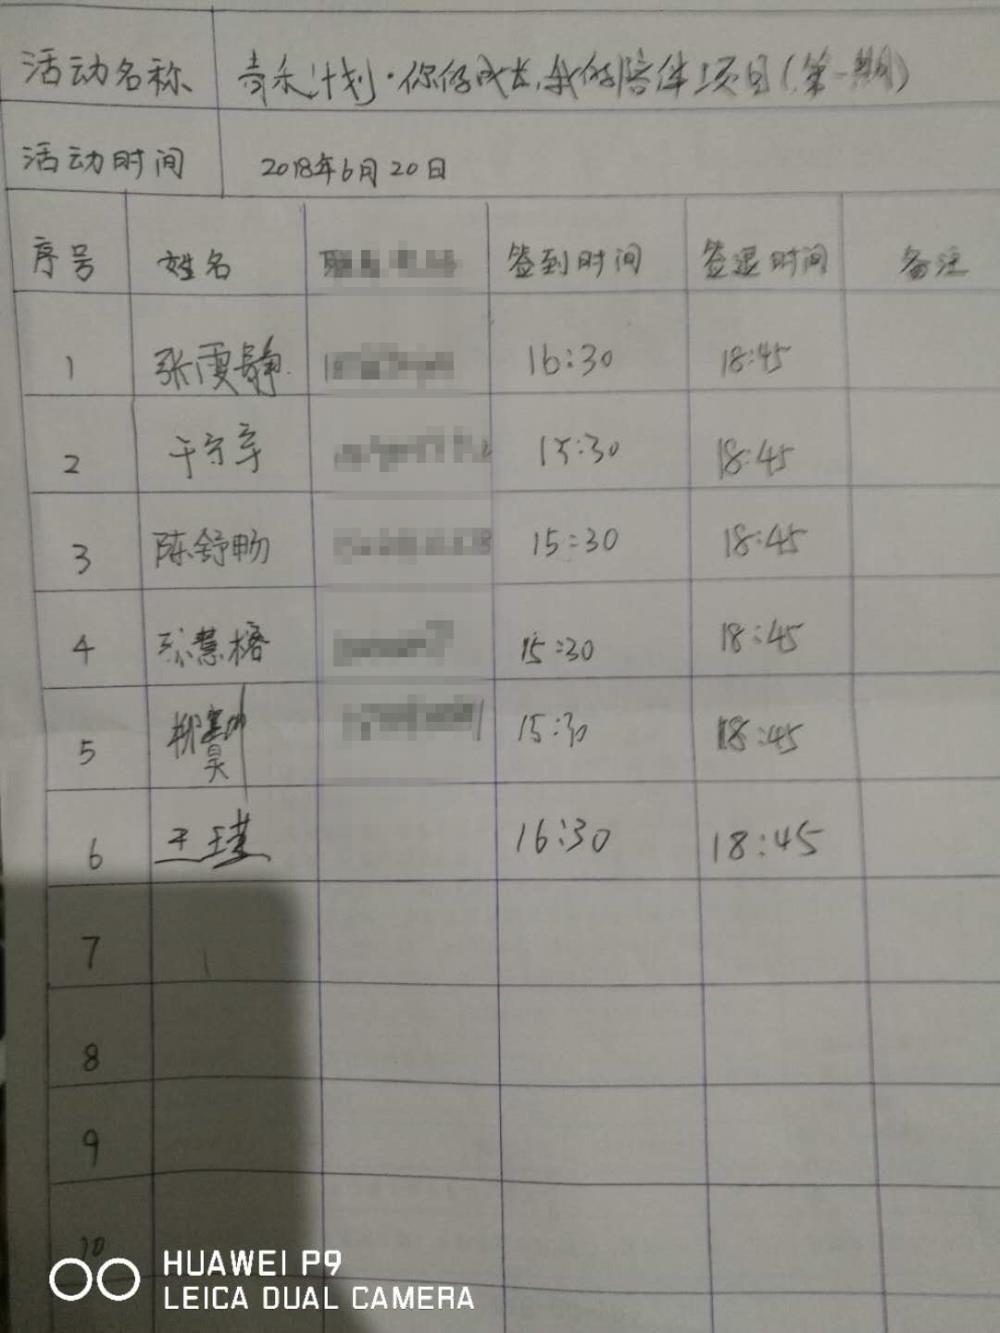 活动名称 青禾计划·你的成长,我的陪伴项目(第一期)
活动时间 2018年6月20日
序号 姓名 签到时间 签退时间 备注
1 张雯静 16:30 18:45
2 于守宇 15:30 18:45
3 陈舒畅 15:30 18:45
4 慧榕 15:30 18:45
5 15:30 18:45
6 王瑾 16:30 18:45
7
8
9
10
HUAWEI P9
LEICA DUAL CAMERA